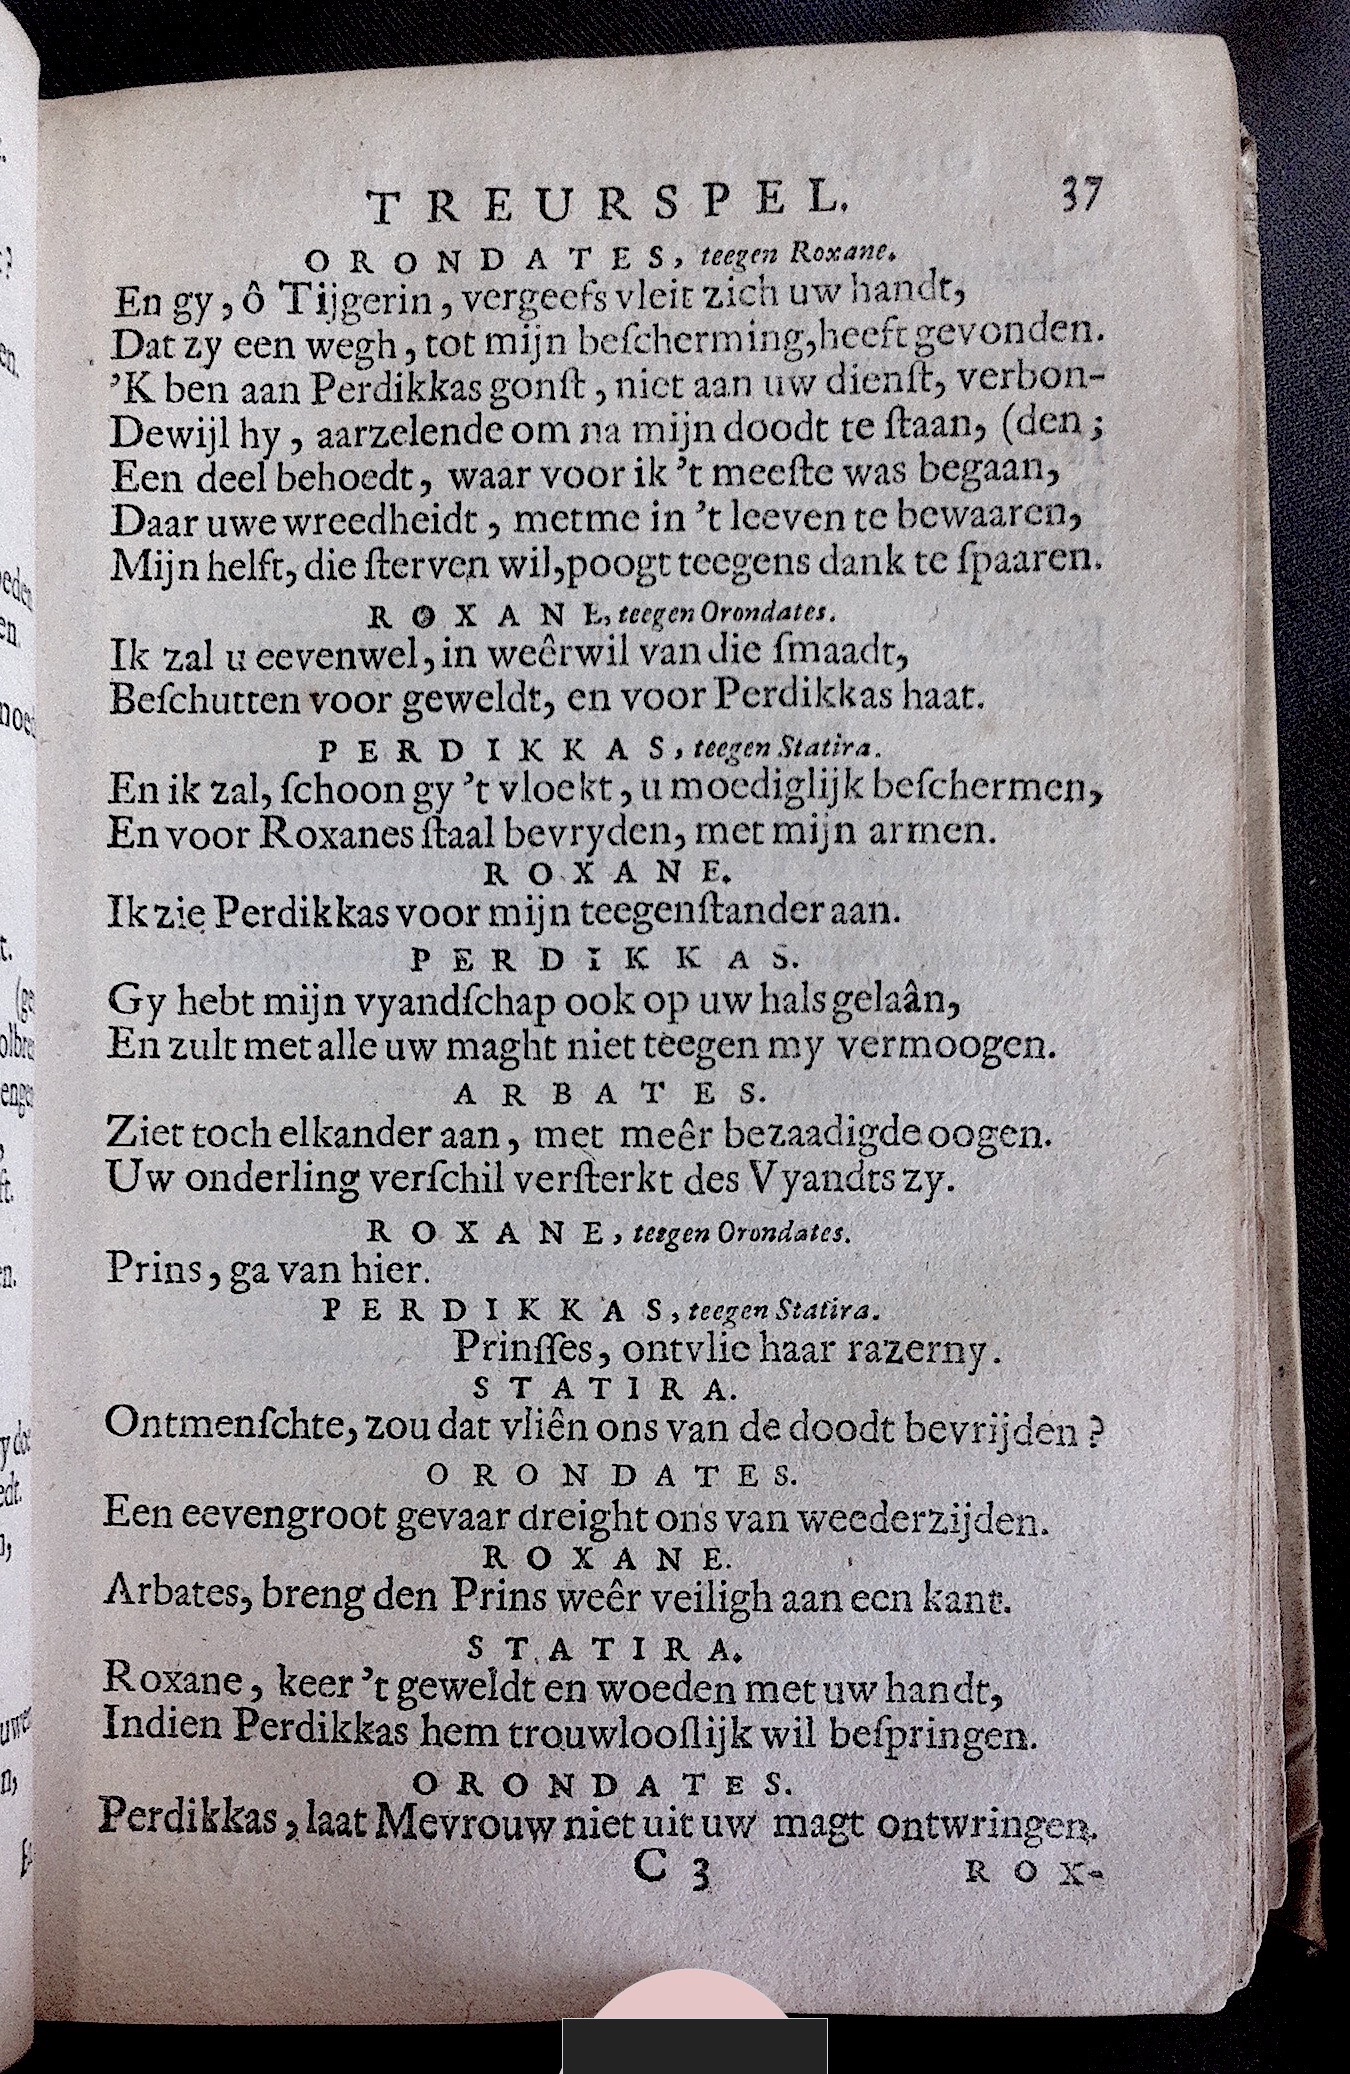 TREURSPEL. 37
ORONDATES, teegen Roxane.
En gy, ô Tijgerin, vergeefs vleit zich uw handt,
Dat zy een wegh, tot mijn beſcherming, heeft gevonden.
'K ben aan Perdikkas gonſt, niet aan uw dienſt, verbon-
Dewijl hy, aarzelende om na mijn doodt te ſtaan, (den;
Een deel behoedt, waar voor ik 't meeſte was begaan,
Daar uwe wreedheidt, metme in 't leeven te bewaaren,
Mijn helft, die ſterven wil, poogt teegens dank te ſpaaren.
ROXANE, teegen Orondates.
Ik zal u eevenwel, in weêrwil van die ſmaadt,
Beſchutten voor geweldt, en voor Perdikkas haat.
PERDIKKAS, teegen Statira.
En ik zal, ſchoon gy 't vloekt, u moediglijk beſchermen,
En voor Roxanes ſtaal bevryden, met mijn armen.
ROXANE.
Ik zie Perdikkas voor mijn teegenſtander aan.
PERDIKKAS.
Gy hebt mijn vyandſchap ook op uw hals gelaân,
En zult met alle uw maght niet teegen my vermoogen.
ARBATES.
Ziet toch elkander aan, met meêr bezaadigde oogen.
Uw onderling verſchil verſterkt des Vyandts zy.
ROXANE, teegen Orondates.
Prins, ga van hier.
PERDIKKAS, teegen Statira.
Prinſſes, ontvlie haar razerny.
STATIRA.
Ontmenſchte, zou dat vliên ons van de doodt bevrijden?
ORONDATES.
Een eevengroot gevaar dreight ons van weederzijden.
ROXANE.
Arbates, breng den Prins weêr veiligh aan een kant.
STATIRA.
Roxane, keer 't geweldt en woeden met uw handt,
Indien Perdikkas hem trouwlooſlijk wil beſpringen.
ORONDATES.
Perdikkas, laat Mevrouw niet uit uw magt ontwringen.
C 3 ROX-